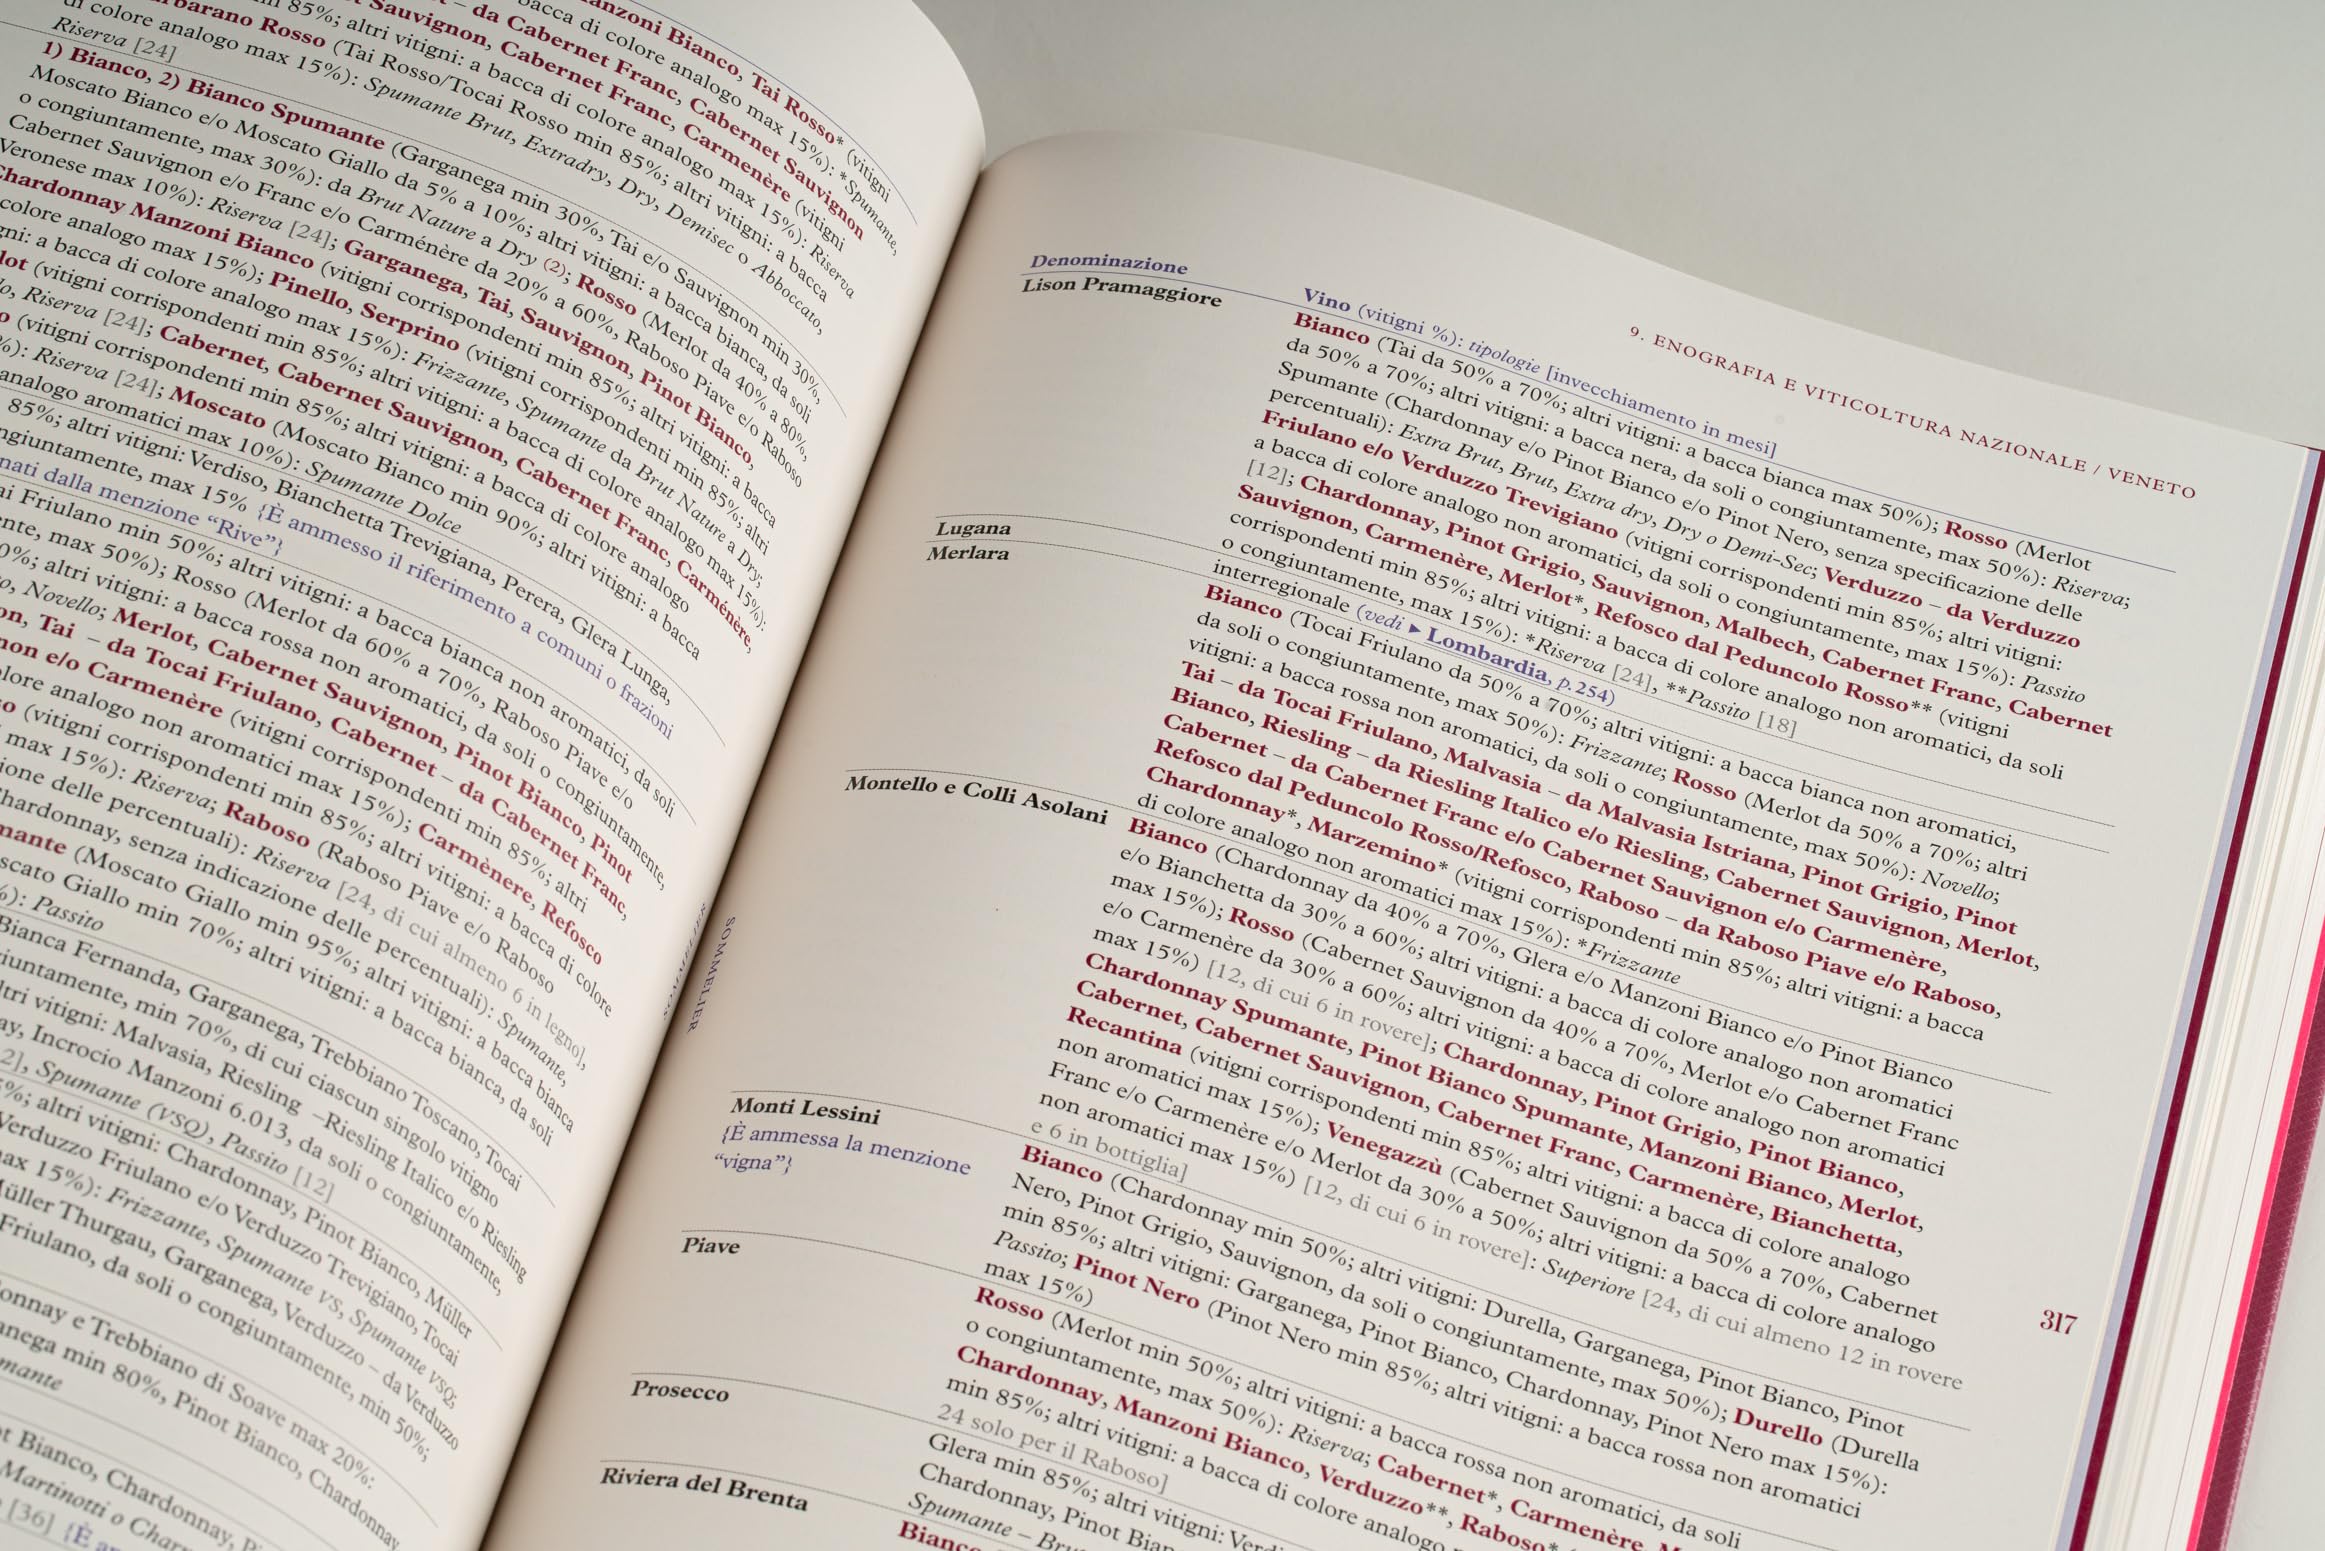 anzoni Bianco, Tai Rosso* (vitigni
bacca di colore analogo max 15%): *Spumante,
t Sauvignon – da Cabernet Franc, Cabernet Sauvignon
Sauvignon, Cabernet Franc, Carmenère (vitigni
in 85%; altri vitigni: a bacca di colore analogo max 15%): Riserva
arbarano Rosso (Tai Rosso/Tocai Rosso min 85%; altri vitigni: a bacca
di colore analogo max 15%): Spumante Brut, Extradry, Dry, Demisec o Abboccato,
Riserva [24]
1) Bianco, 2) Bianco Spumante (Garganega min 30%, Tai e/o Sauvignon min 30%,
Moscato Bianco e/o Moscato Giallo da 5% a 10%; altri vitigni: a bacca bianca, da soli
o congiuntamente, max 30%): da Brut Nature a Dry (2); Rosso (Merlot da 40% a 80%,
Cabernet Sauvignon e/o Franc e/o Carménère da 20% a 60%, Raboso Piave e/o Raboso
Veronese max 10%): Riserva [24]; Garganega, Tai, Sauvignon, Pinot Bianco,
Chardonnay Manzoni Bianco (vitigni corrispondenti min 85%; altri vitigni: a bacca
colore analogo max 15%); Pinello, Serprino (vitigni corrispondenti min 85%; altri
gni: a bacca di colore analogo max 15%): Frizzante, Spumante da Brut Nature a Dry;
lot (vitigni corrispondenti min 85%; altri vitigni: a bacca di colore analogo max 15%):
lo, Riserva [24]; Cabernet, Cabernet Sauvignon, Cabernet Franc, Carménère,
o (vitigni corrispondenti min 85%; altri vitigni: a bacca di colore analogo
%): Riserva [24]; Moscato (Moscato Bianco min 90%; altri vitigni: a bacca
analogo aromatici max 10%): Spumante Dolce
85%; altri vitigni: Verdiso, Bianchetta Trevigiana, Perera, Glera Lunga,
ngiuntamente, max 15% {È ammesso il riferimento a comuni o frazioni
nati dalla menzione “Rive”}
ai Friulano min 50%; altri vitigni: a bacca bianca non aromatici, da soli
ente, max 50%); Rosso (Merlot da 60% a 70%, Raboso Piave e/o
0%; altri vitigni: a bacca rossa non aromatici, da soli o congiuntamente,
o, Novello; Merlot, Cabernet Sauvignon, Pinot Bianco, Pinot
on, Tai – da Tocai Friulano, Cabernet – da Cabernet Franc,
non e/o Carmenère (vitigni corrispondenti min 85%; altri
olore analogo non aromatici max 15%); Carmènere, Refosco
so (vitigni corrispondenti min 85%; altri vitigni: a bacca di colore
max 15%): Riserva; Raboso (Raboso Piave e/o Raboso
ione delle percentuali): Riserva [24, di cui almeno 6 in legno],
hardonnay, senza indicazione delle percentuali): Spumante,
mante (Moscato Giallo min 95%; altri vitigni: a bacca bianca
scato Giallo min 70%; altri vitigni: a bacca bianca, da soli
%): Passito
Bianca Fernanda, Garganega, Trebbiano Toscano, Tocai
giuntamente, min 70%, di cui ciascun singolo vitigno
ltri vitigni: Malvasia, Riesling –Riesling Italico e/o Riesling
ay, Incrocio Manzoni 6.013, da soli o congiuntamente,
2], Spumante (VSQ), Passito [12]
5%; altri vitigni: Chardonnay, Pinot Bianco, Müller
Verduzzo Friulano e/o Verduzzo Trevigiano, Tocai
max 15%): Frizzante, Spumante VS, Spumante VSQ;
Müller Thurgau, Garganega, Verduzzo – da Verduzzo
Friulano, da soli o congiuntamente, min 50%;
onnay e Trebbiano di Soave max 20%:
anega min 80%, Pinot Bianco, Chardonnay
mante
t Bianco, Chardonnay, Pi
Martinotti o Charm
[36] {È am
SOMMELIER
9. ENOGRAFIA E VITICOLTURA NAZIONALE / VENETO
Denominazione
Vino (vitigni %): tipologie [invecchiamento in mesi]
Lison Pramaggiore
Bianco (Tai da 50% a 70%; altri vitigni: a bacca bianca max 50%); Rosso (Merlot
da 50% a 70%; altri vitigni: a bacca nera, da soli o congiuntamente, max 50%): Riserva;
Spumante (Chardonnay e/o Pinot Bianco e/o Pinot Nero, senza specificazione delle
percentuali): Extra Brut, Brut, Extra dry, Dry o Demi-Sec; Verduzzo – da Verduzzo
Friulano e/o Verduzzo Trevigiano (vitigni corrispondenti min 85%; altri vitigni:
a bacca di colore analogo non aromatici, da soli o congiuntamente, max 15%): Passito
[12]; Chardonnay, Pinot Grigio, Sauvignon, Malbech, Cabernet Franc, Cabernet
Sauvignon, Carmenère, Merlot*, Refosco dal Peduncolo Rosso** (vitigni
corrispondenti min 85%; altri vitigni: a bacca di colore analogo non aromatici, da soli
o congiuntamente, max 15%): *Riserva [24], **Passito [18]
Lugana
interregionale (vedi ▸ Lombardia, p. 254)
Merlara
Bianco (Tocai Friulano da 50% a 70%; altri vitigni: a bacca bianca non aromatici,
da soli o congiuntamente, max 50%): Frizzante; Rosso (Merlot da 50% a 70%; altri
vitigni: a bacca rossa non aromatici, da soli o congiuntamente, max 50%): Novello;
Tai – da Tocai Friulano, Malvasia – da Malvasia Istriana, Pinot Grigio, Pinot
Bianco, Riesling – da Riesling Italico e/o Riesling, Cabernet Sauvignon, Merlot,
Cabernet – da Cabernet Franc e/o Cabernet Sauvignon e/o Carmenère,
Refosco dal Peduncolo Rosso/Refosco, Raboso – da Raboso Piave e/o Raboso,
Chardonnay*, Marzemino* (vitigni corrispondenti min 85%; altri vitigni: a bacca
di colore analogo non aromatici max 15%): *Frizzante
Montello e Colli Asolani
Bianco (Chardonnay da 40% a 70%, Glera e/o Manzoni Bianco e/o Pinot Bianco
e/o Bianchetta da 30% a 60%; altri vitigni: a bacca di colore analogo non aromatici
max 15%); Rosso (Cabernet Sauvignon da 40% a 70%, Merlot e/o Cabernet Franc
e/o Carmenère da 30% a 60%; altri vitigni: a bacca di colore analogo non aromatici
max 15%) [12, di cui 6 in rovere]; Chardonnay, Pinot Grigio, Pinot Bianco,
Chardonnay Spumante, Pinot Bianco Spumante, Manzoni Bianco, Merlot,
Cabernet, Cabernet Sauvignon, Cabernet Franc, Carmenère, Bianchetta,
Recantina (vitigni corrispondenti min 85%; altri vitigni: a bacca di colore analogo
non aromatici max 15%); Venegazzù (Cabernet Sauvignon da 50% a 70%, Cabernet
Franc e/o Carmenère e/o Merlot da 30% a 50%; altri vitigni: a bacca di colore analogo
non aromatici max 15%) [12, di cui 6 in rovere]: Superiore [24, di cui almeno 12 in rovere
e 6 in bottiglia]
Monti Lessini
{È ammessa la menzione
“vigna”}
Bianco (Chardonnay min 50%; altri vitigni: Durella, Garganega, Pinot Bianco, Pinot
Nero, Pinot Grigio, Sauvignon, da soli o congiuntamente, max 50%); Durello (Durella
min 85%; altri vitigni: Garganega, Pinot Bianco, Chardonnay, Pinot Nero max 15%):
Passito; Pinot Nero (Pinot Nero min 85%; altri vitigni: a bacca rossa non aromatici
max 15%)
Piave
Rosso (Merlot min 50%; altri vitigni: a bacca rossa non aromatici, da soli
o congiuntamente, max 50%): Riserva; Cabernet*, Carmenère, M
Chardonnay, Manzoni Bianco, Verduzzo**, Raboso*
min 85%; altri vitigni: a bacca di colore analogo
24 solo per il Raboso]
Prosecco
Glera min 85%; altri vitigni: Verdi
Chardonnay, Pinot Bian
Spumante – Bru
Riviera del Brenta
Bianco
317